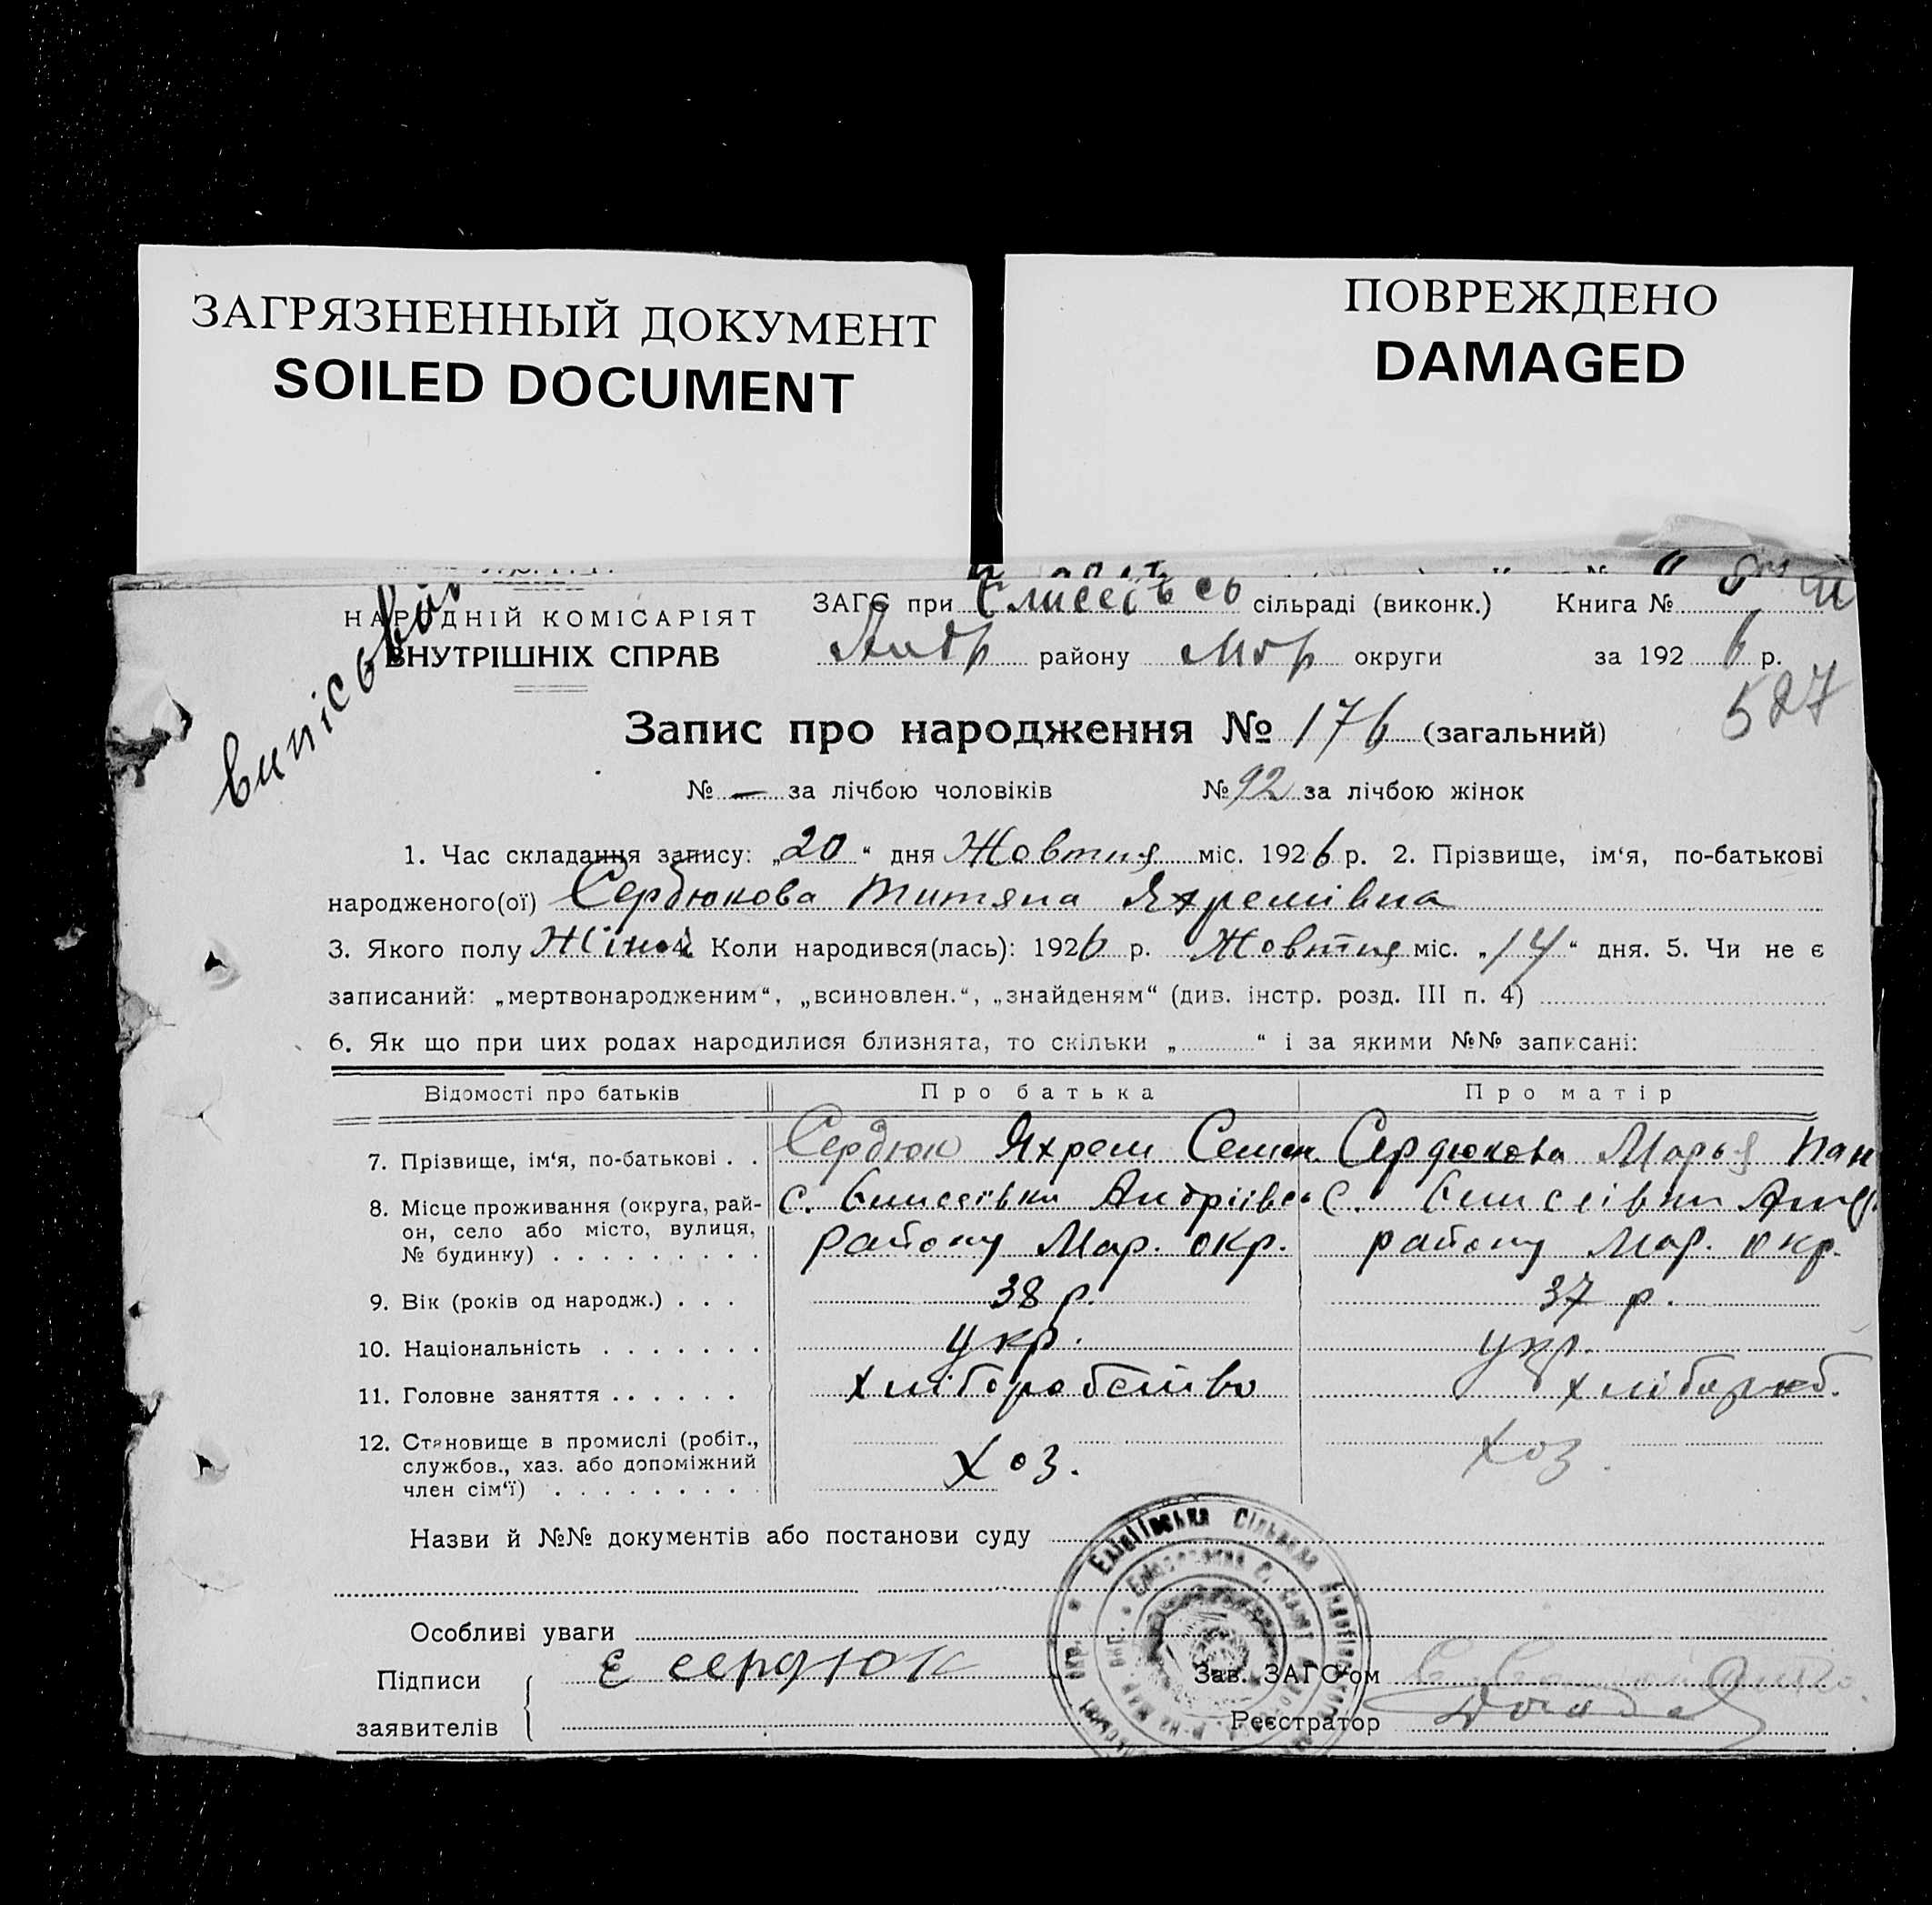 ЗАГРЯЗНЕННЫЙ ДОКУМЕНТ
SOILED DOCUMENT
ПОВРЕЖДЕНО
DAMAGED
НАРОДНІЙ КОМІСАРІЯТ
ВНУТРІШНІХ СПРАВ
ЗАГС при сільраді (виконк.) Книга №
Андр району Мар округи за 1926 р.
527
Запис про народження № 176 (загальний)
№ — за лічбою чоловіків № 92 за лічбою жінок
1. Час складання запису: „20“ дня Жовтня міс. 1926 р. 2. Прізвище, ім‘я, по-батькові
народженого(ої) Сердюкова Титяна Яхремівна
3. Якого полу Жіноч 4. Коли народився(лась): 1926 р. Жовтня міс. „14“ дня. 5. Чи не є
записаний: „мертвонародженим“, „всиновлен.“, „знайденям“ (див. інстр. розд. III п. 4)
6. Як що при цих родах народилися близнята, то скільки „ “ і за якими №№ записані:
Відомості про батьків Про батька Про матір
7. Прізвище, ім‘я, по-батькові . . Сердюк Яхрем Семен. Сердюкова Марья Пан
8. Місце проживання (округа, рай- с. Єлисеївки Андріївсь с. Єлисеївки Андр
он, село або місто, вулиця,
№ будинку) . . . . . . . . . району Мар. окр. району Мар. окр.
9. Вік (років од народж.) . . . 38 р. 37 р.
10. Національність . . . . . . . укр. укр.
11. Головне заняття . . . . . . хліборобство хлібороб.
12. Становище в промислі (робіт.,
службов., хаз. або допоміжний хоз. хоз.
член сім‘ї) . . . . . . . . .
Назви й №№ документів або постанови суду
Особливі уваги
Підписи Є сердюк Зав. ЗАГС-ом
заявителів Реєстратор